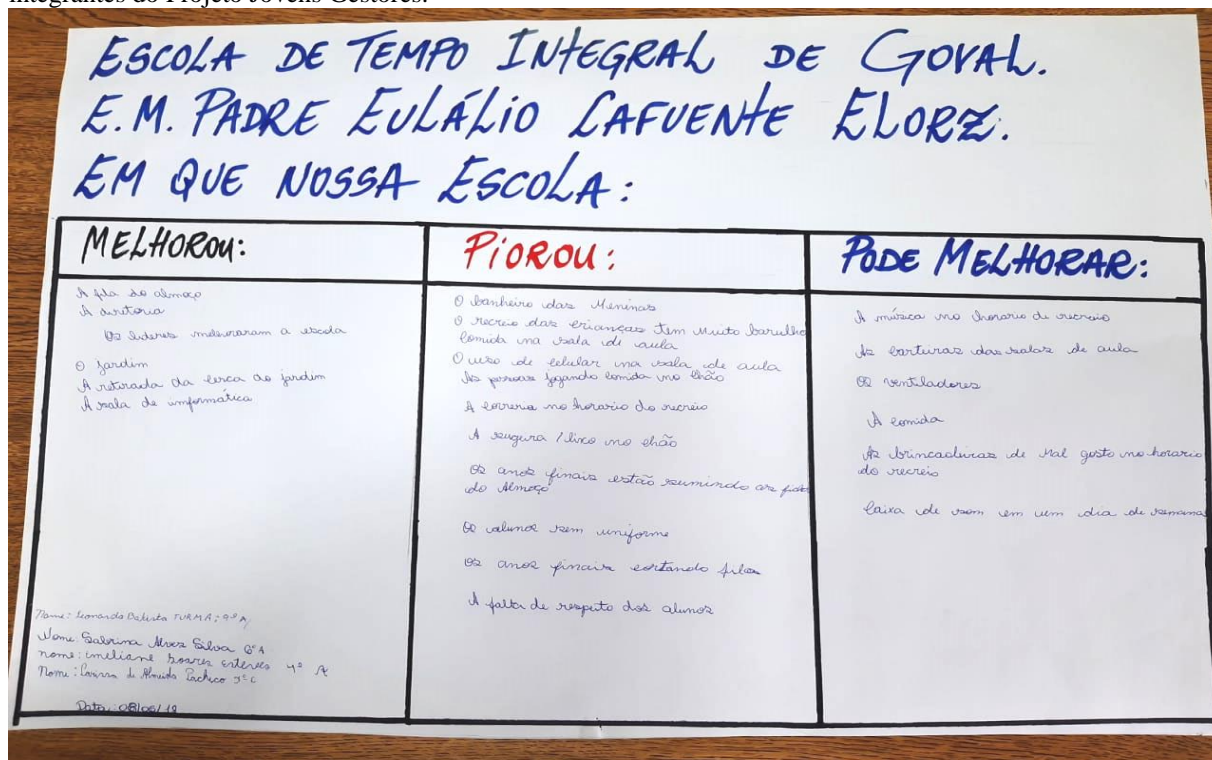 integrantes do Projeto Jovens Gestores.
ESCOLA DE TEMPO INTEGRAL DE GOVAL.
E.M. PADRE EULÁLIO LAFUENTE ELORZ.
EM QUE NOSSA ESCOLA:
MELHOROU:
A fila do almoço
A diretoria
Os lideres melhoraram a escola
O jardim
A retirada da cerca do jardim
A sala de informática
Nome: Leonardo Batista TURMA: 9º A
Nome: Sabrina Alves Silva 6º A
nome: Emiliane Soares Esteves 4º A
Nome: Larissa de Almeida Pacheco 5º C
Data: 08/06/18
PIOROU:
O banheiro das Meninas
O recreio das crianças tem Muito barulho
Comida na sala de aula
O uso de celular na sala de aula
As pessoas jogando comida no chão
A correria no horario do recreio
A sugura / lixo no chão
Os anos finais estão sumindo as
do Almoço
Os alunos sem uniforme
Os anos finais cortando filas
A falta de respeito dos alunos
PODE MELHORAR:
A música no horario de recreio
As carturas das salas de aula
Os ventiladores
A comida
As brincadeiras de Mal gosto no horario
do recreio
Caixa de som em um dia de semana